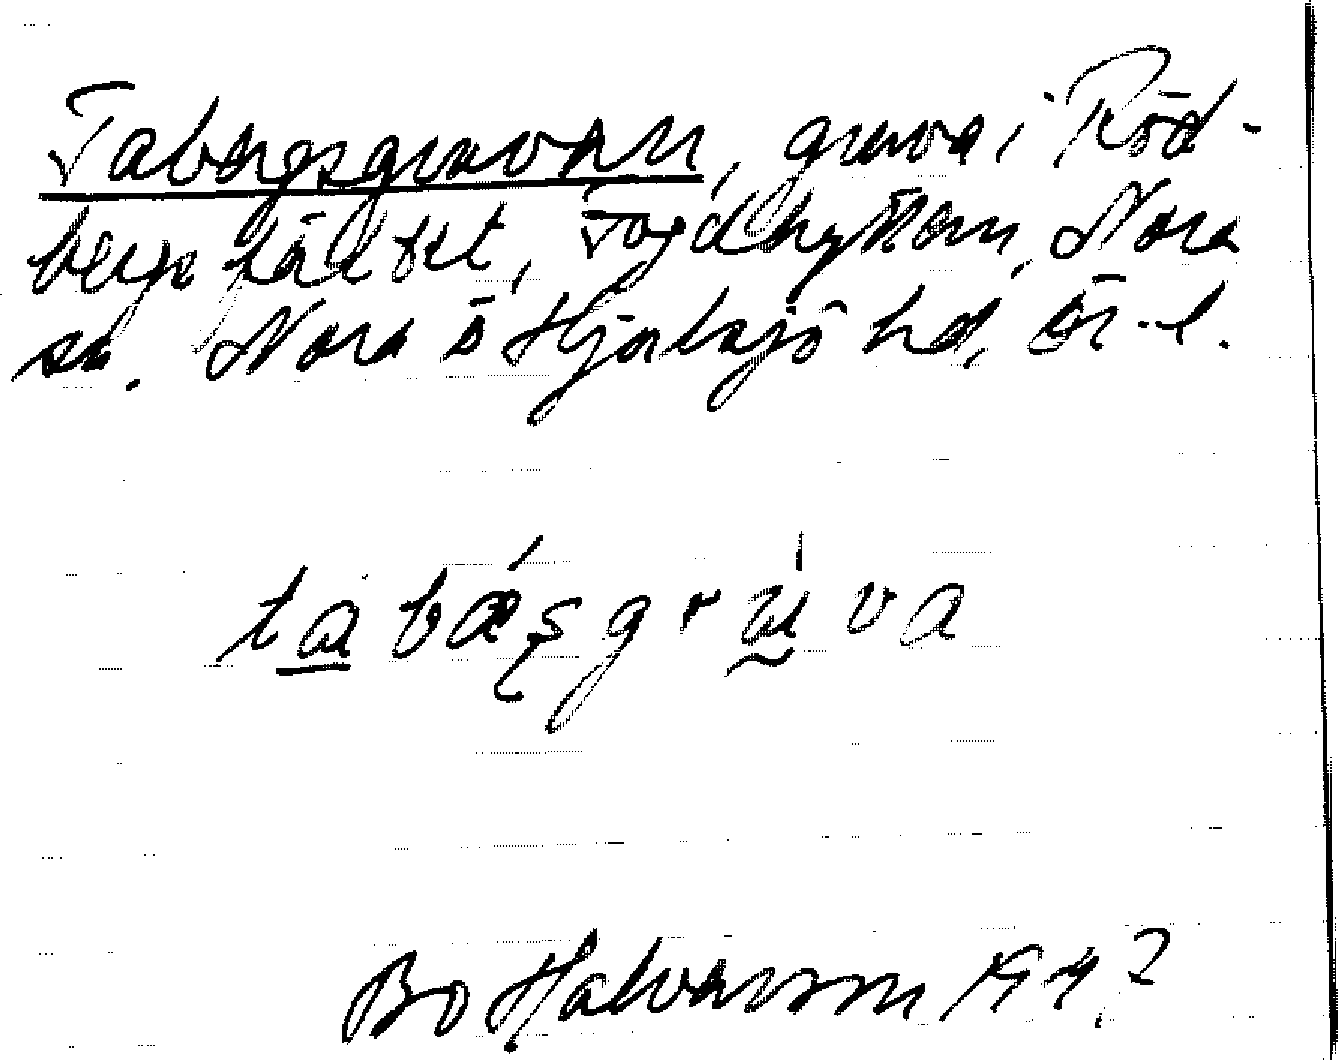 Tabergsgruvan, gruva i Röd-
bergsfältet, Fogdhyttan, Nora
sn. Nora o Hjulsjö hd, Ör. l.
tabäsgruva
Bo Halvarsson 194?